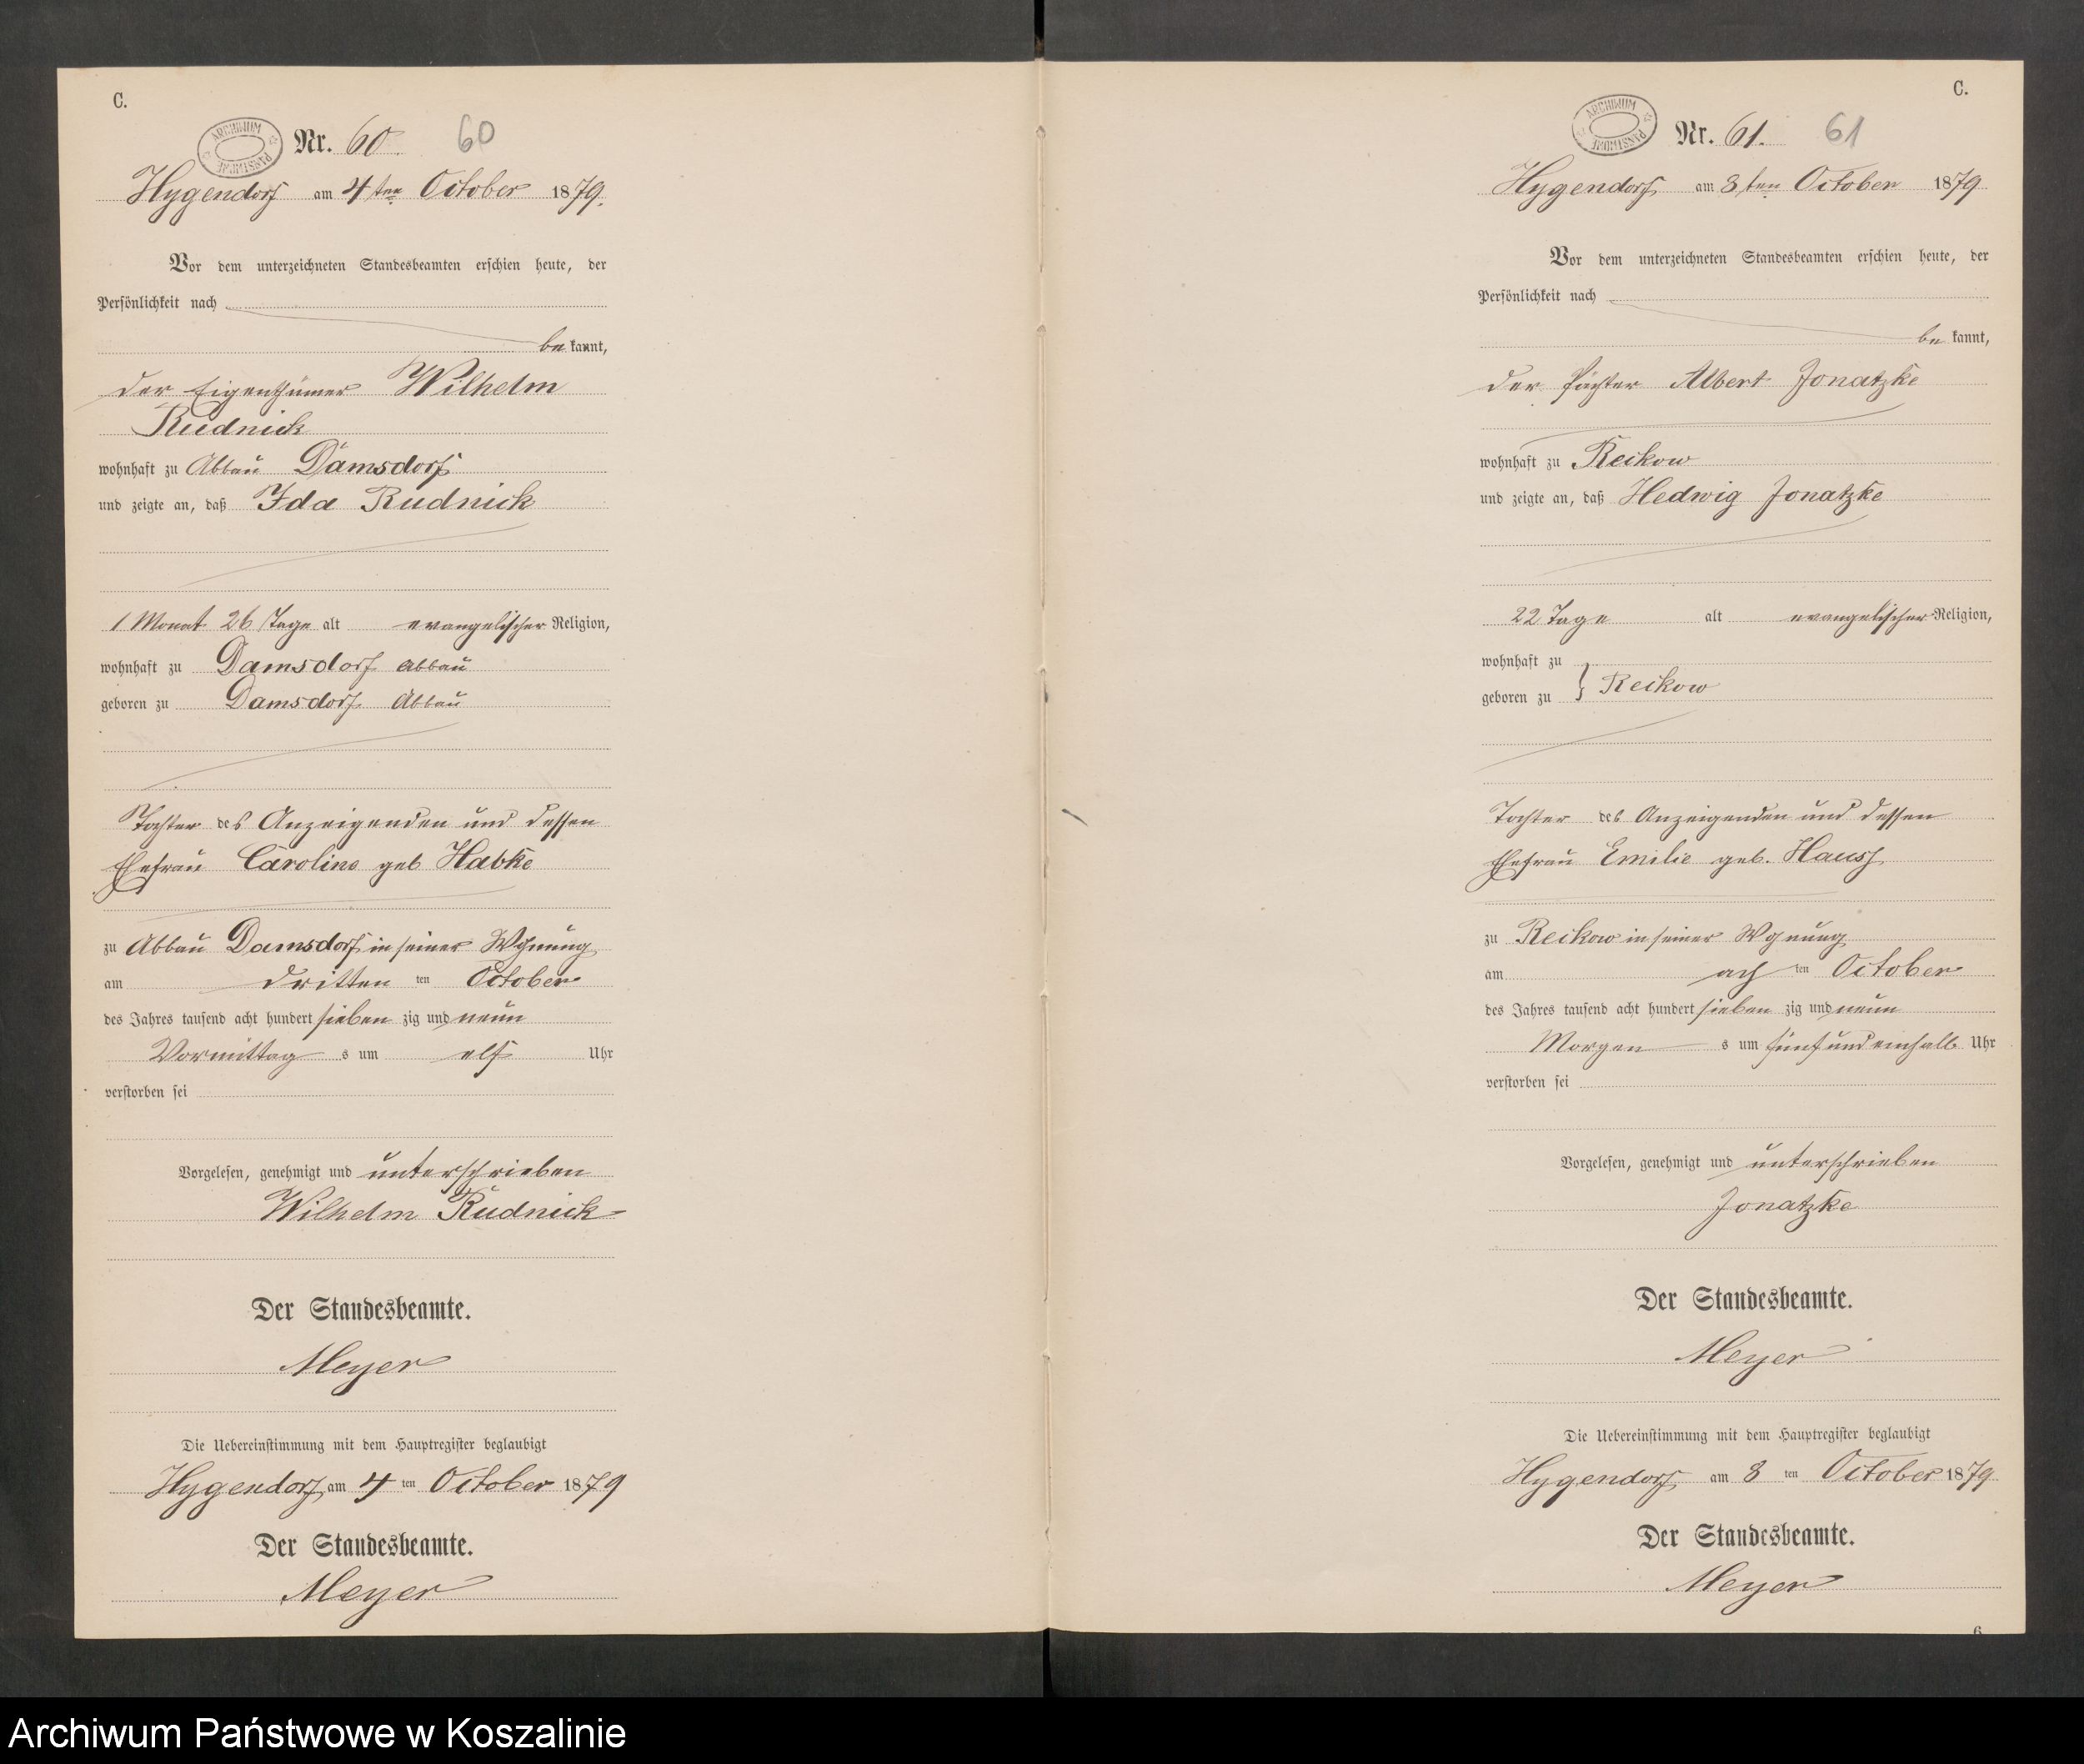 C.
ARCHIWUM PAŃSTWOWE
Nr. 60. 60
Hygendorf am 4ten October 1879.
Vor dem unterzeichneten Standesbeamten erschien heute, der
Persönlichkeit nach
be kannt,
der Eigenthümer Wilhelm
Rudnick
wohnhaft zu Abbau Damsdorf
und zeigte an, daß Ida Rudnick
1 Monat 26 Tage alt evangelischer Religion,
wohnhaft zu Damsdorf Abbau
geboren zu Damsdorf Abbau
Tochter des Anzeigenden und dessen
Ehefrau Caroline geb Habke
zu Abbau Damsdorf in seiner Wohnung
am dritten ten October
des Jahres tausend acht hundert sieben zig und neun
Vormittag s um elf Uhr
verstorben sei
Vorgelesen, genehmigt und unterschrieben
Wilhelm Rudnick
Der Standesbeamte.
Meyer
Die Uebereinstimmung mit dem Hauptregister beglaubigt
Hygendorf, am 4 ten October 1879
Der Standesbeamte.
Meyer
C.
ARCHIWUM PAŃSTWOWE
Nr. 61. 61
Hygendorf am 8ten October 1879
Vor dem unterzeichneten Standesbeamten erschien heute, der
Persönlichkeit nach
be kannt,
der Pächter Albert Jonatzke
wohnhaft zu Reckow
und zeigte an, daß Hedwig Jonatzke
22 Tage alt evangelischer Religion,
wohnhaft zu
geboren zu } Reckow
Tochter des Anzeigenden und dessen
Ehefrau Emilie geb. Hauss
zu Reckow in seiner Wohnung
am ach ten October
des Jahres tausend acht hundert sieben zig und neun
Morgen s um fünf und einhalb Uhr
verstorben sei
Vorgelesen, genehmigt und unterschrieben
Jonatzke
Der Standesbeamte.
Meyer
Die Uebereinstimmung mit dem Hauptregister beglaubigt
Hygendorf am 8 ten October 1879
Der Standesbeamte.
Meyer
6
Archiwum Państwowe w Koszalinie